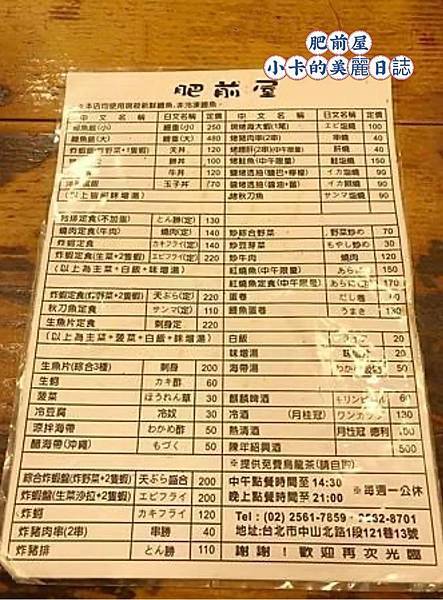 肥前屋
小卡的美麗日誌
肥前屋
中文名稱 日文名稱 定價 中文名稱 日文名稱 定價
鰻魚飯(小) 鰻重(小) 250
鰻魚飯(大) 鰻重(大) 480 烤豬肉串(2串) 串燒 40
天丼 120
丼 100 烤鮭魚(中午限量) 鮭塩燒 150
牛丼 120 イカ塩燒 90
玉子丼 烤透抽(醬油+薑) 90
(以上皆附味噌湯) 烤秋刀魚 サンマ塩燒 90
豬排定食(不加蛋) とん勝(定) 130
燒肉定食(牛肉) 燒肉(定) 140 炒綜合野菜 野菜炒め 70
炸蝦定食 カキフライ(定) 220 炒豆芽菜 もやし炒め 30
炸蝦定食(生菜+2隻蝦) (定) 220 炒牛肉 燒肉 120
(以上為主菜+白飯+味噌湯) 紅燒魚(中午限量) あらに 150
紅燒魚定食(中午限量) 170
炸蝦定食(炸野菜+2隻蝦) 天ぷら(定) 220 蛋卷 だし卷 60
秋刀魚定食 サンマ(定) 110 鰻魚蛋卷 うまき 130
生魚片定食 刺身定 220
(以上為主菜+菠菜+白飯+味噌湯) 白飯 20
味噌湯 20
生魚片(綜合3種) 刺身 200 海帶湯 50
生蚵 カキ酢 60
菠菜 ほうれん草 30 麒麟啤酒 60
冷豆腐 冷奴 30 冷酒 (月桂冠) ワンカップ 130
涼拌海帶 わかめ酢 50 熱清酒 月桂冠 德利 150
醋海帶(沖繩) もづく 50 陳年紹興酒 500
※提供免費烏龍茶(請自取)
綜合炸蝦盤(炸野菜+2隻蝦) 天ぷら盛合 200 中午點餐時間至 14:30
炸蝦盤(生菜沙拉+2隻蝦) エビフライ 200 晚上點餐時間至 21:00 ※每週一公休
炸蚵 カキフライ 120 Tel : (02) 2561-7859
炸豬肉串(2串) 串勝 40 地址:台北市中山北路1段121巷13號
炸豬排 とん勝 110 謝謝!歡迎再次光臨